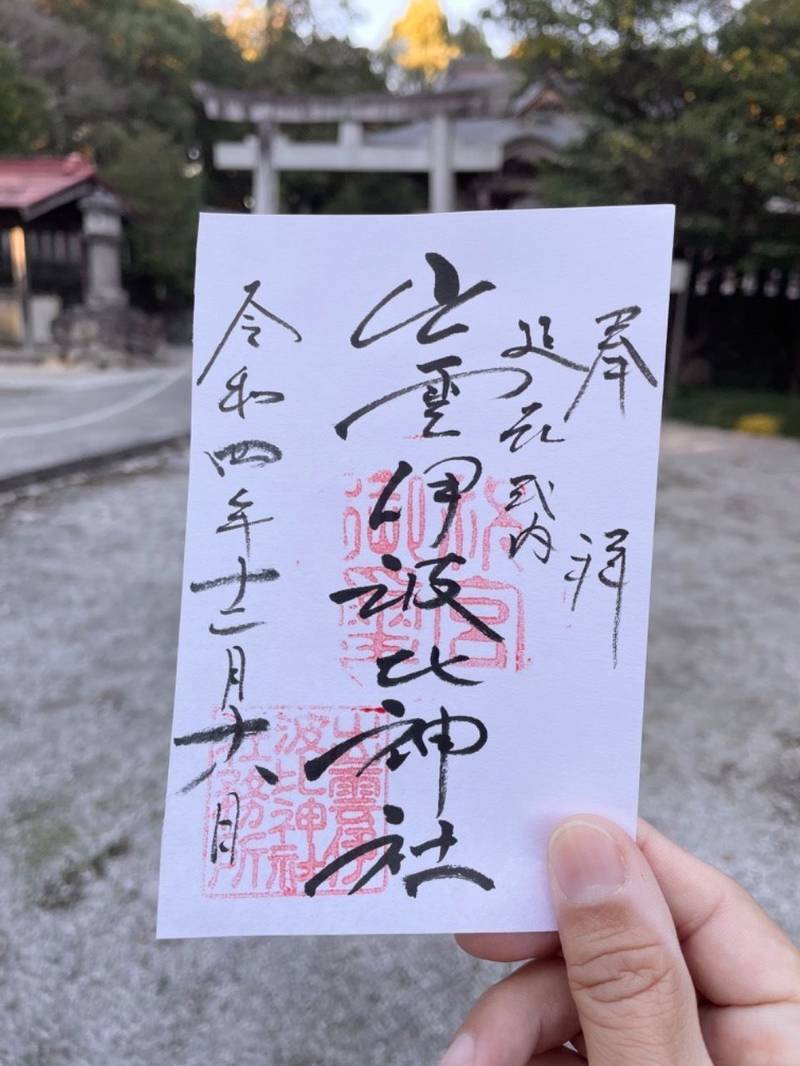 奉拝
延喜式内
出雲伊波比神社
令和四年十二月十八日
出雲伊
波比神社
社務所